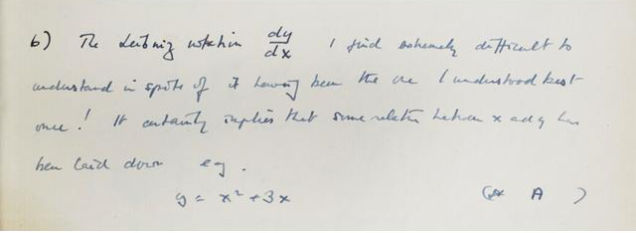 6) The Leibniz notation dy/dx I find extremely difficult to
understand in spite of it having been the one I understood best
once! It certainly implies that some relation between x and y has
been laid down e.g.
y = x² + 3x ( A )